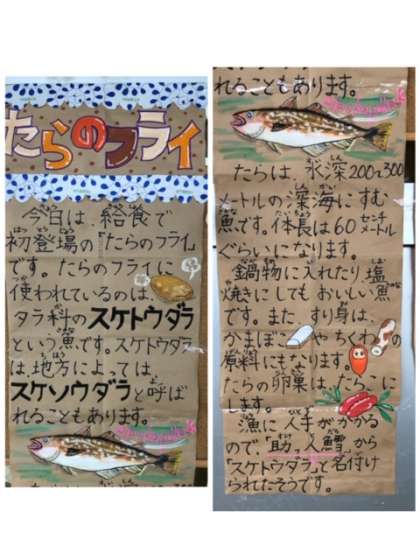 たらのフライ
今日は給食で
初登場の「たらのフライ」
です。たらのフライに
使われているのは、
タラ科のスケトウダラ
という魚です。スケトウダラ
は、地方によっては
スケソウダラと呼ば
れることもあります。
れることもあります。
たらは、水深200〜300
メートルの深海にすむ
魚です。体長は60センチメートル
ぐらいになります。
鍋物に入れたり、塩
焼きにしてもおいしい魚
です。また、すり身は、
かまぼこやちくわの
原料にもなります。
たらの卵巣は、たらこに
します。
漁に人手がかかる
ので、「助っ人鱈」から
「スケトウダラ」と名付け
られたそうです。